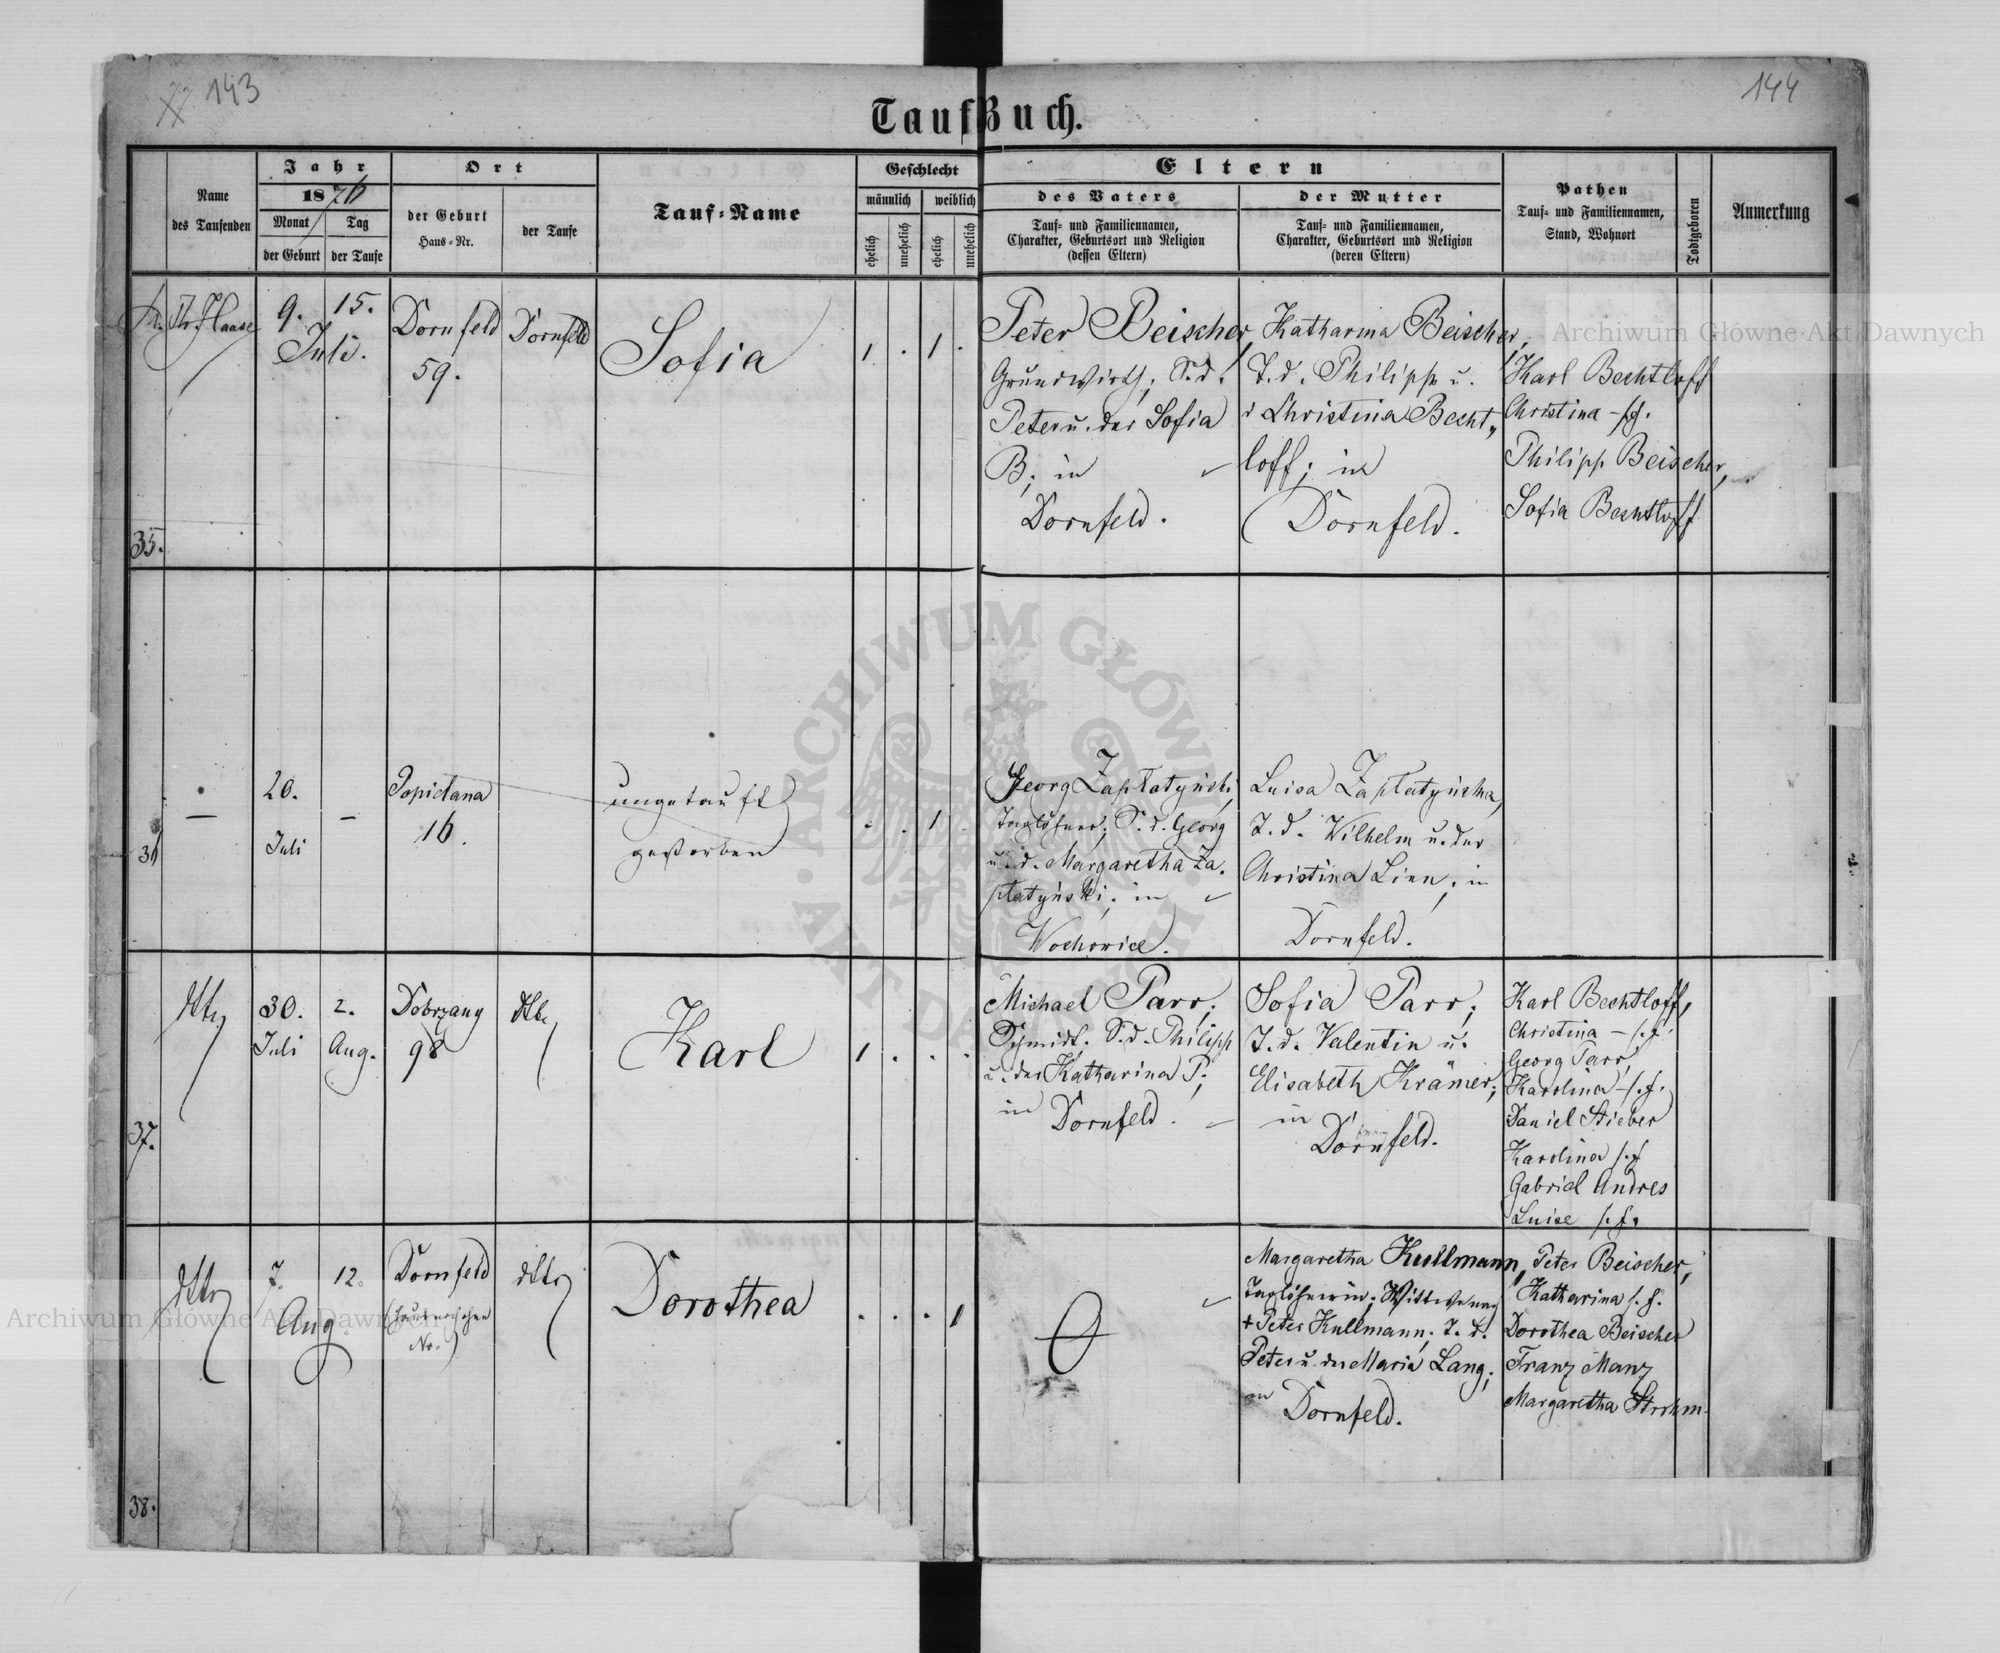 143
144
TaufBuch.
Name
des Taufenden
Jahr
1876
Monat
der Geburt
Tag
der Taufe
Ort
der Geburt
Haus-Nr.
der Taufe
Tauf-Name
Geschlecht
männlich
weiblich
ehelich
unehelich
ehelich
unehelich
Eltern
des Vaters
Tauf- und Familiennamen,
Charakter, Geburtsort und Religion
(dessen Eltern)
der Mutter
Tauf- und Familiennamen,
Charakter, Geburtsort und Religion
(deren Eltern)
Pathen
Tauf- und Familiennamen,
Stand, Wohnort
Todtgeboren
Anmerkung
35.
Haase
9.
15.
Juli.
Dornfeld
59.
Dornfeld
Sofia
1 . 1 .
Peter Beischer,
Grundwirth; S. d.
Peter u. der Sofia
B; in
Dornfeld.
Katharina Beischer,
T. d. Philipp u.
d Christina Becht„
loff; in
Dornfeld.
Karl Bechtloff
Christina
Philipp Beischer,
Sofia Bechtloff
36
—
20.
Juli
—
Popielana
16.
ungetauft
gestorben
. . 1 .
Georg Zaplatyński,
Taglöhner; S. d. Georg
u. d. Margaretha Za.
platyński; in
Luisa Zaplatyńska,
T. d. Wilhelm u. der
Christina Linn; in
Dornfeld.
37.
dtto
30.
Juli
2.
Aug.
Dobrzany
98
Karl
1 . . .
Michael Parr;
Schmidt. S. d. Philipp
u. der Katharina P.;
in
Dornfeld.
Sofia Parr;
T. d. Valentin u.
Elisabeth Krämer;
in
Dornfeld.
Karl Bechtloff,
Christina — s. f.
Georg Parr,
Karolina — s. f.
Daniel Stieber
Karolina s. f.
Gabriel Andres
Luise s. f.
38.
dtto
7.
Aug.
12.
Dornfeld
(Hausnr. ohne
Nr.)
dtto
Dorothea
. . . 1
Margaretha Kullmann,
Taglöhnerin; Wittwe nach
+ Peter Kullmann; T. d.
Peter u. der Maria Lang;
in
Dornfeld.
Peter Beischer,
Katharina s. f.
Dorothea Beischer
Franz Manz
Margaretha Strohm.
Archiwum Główne Akt Dawnych
Archiwum Główne Akt Dawnych
ARCHIWUM GŁÓWNE AKT DAWNYCH